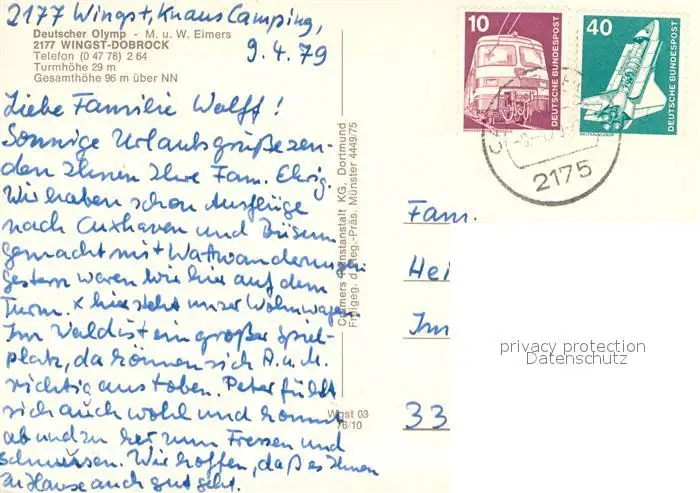 2177 Wingst, Knaus Camping,
9.4.79
Deutscher Olymp - M. u. W. Eimers
2177 WINGST-DOBROCK
Telefon (0 47 78) 2 64
Turmhöhe 29 m
Gesamthöhe 96 m über NN
Liebe Familie Wolff!
Sonnige Urlaubsgrüße sen-
den Ihnen Ihre Fam. Ehrig.
Wir haben schon Ausflüge
nach Cuxhaven und Büsum
gemacht mit Wattwanderungen
gestern waren wir hier auf dem
Turm. x hier steht unser Wohnwagen
Im Wald ist ein großer Spiel-
platz, da können sich A. u. M.
richtig austoben. Peter fühlt
sich auch wohl und kommt
ab und zu her zum Fressen und
schmusen. Wir hoffen, daß es Ihnen
zu Hause auch gut geht.
Cramers Kunstanstalt KG, Dortmund
Freigeg. d. Reg.-Präs. Münster 4449/75
Wgst 03
76/10
10
DEUTSCHE BUNDESPOST
40
DEUTSCHE BUNDESPOST
2175
Fam.
Hei
Im
33
privacy protection
Datenschutz